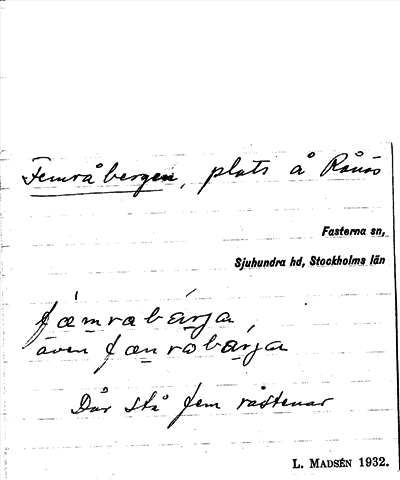 Femråbergen, plats å Rånäs
Fasterna sn,
Sjuhundra hd, Stockholms län
fæmrabærja
även fænrabærja
Där stå fem råstenar
L. MADSÉN 1932.